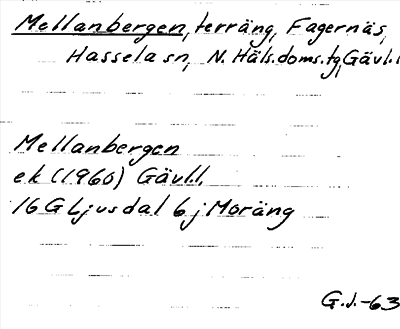 Mellanbergen, terräng, Fagernäs,
Hassela sn, N. Häls. doms. tg, Gävl. l
Mellanbergen
ek (1960) Gävl.l.
16 G Ljusdal 6 j Moräng
G.J.-63